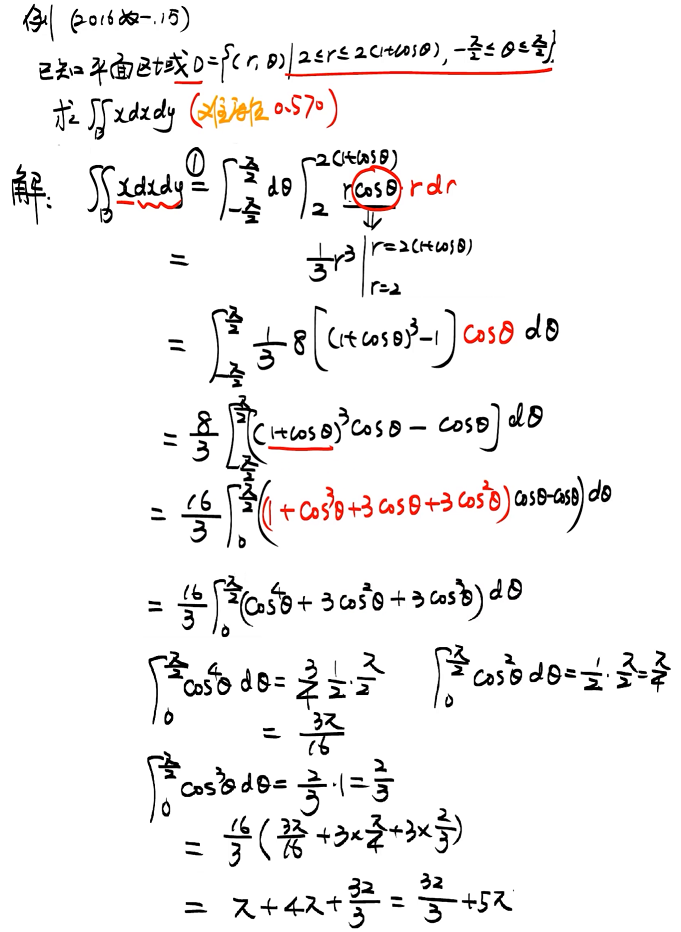 例 (2016数一.15)
已知平面区域D={(r,θ)|2≤r≤2(1+cosθ), -π/2≤θ≤π/2}
求∬_D xdxdy (难度 0.570)
解: ∬_D xdxdy ①= ∫_{-π/2}^{π/2} dθ ∫_2^{2(1+cosθ)} rcosθ rdr
⇓
= 1/3 r³ |_{r=2}^{r=2(1+cosθ)}
= ∫_{-π/2}^{π/2} 1/3 8[(1+cosθ)³-1] cosθ dθ
= 8/3 ∫_{-π/2}^{π/2} [(1+cosθ)³cosθ - cosθ] dθ
= 16/3 ∫_0^{π/2} ((1+cos³θ+3cosθ+3cos²θ)cosθ-cosθ) dθ
= 16/3 ∫_0^{π/2} (cos⁴θ+3cos²θ+3cos³θ) dθ
∫_0^{π/2} cos⁴θ dθ = 3/4 1/2·π/2 ∫_0^{π/2} cos²θ dθ = 1/2·π/2 = π/4
= 3π/16
∫_0^{π/2} cos³θ dθ = 2/3·1 = 2/3
= 16/3 (3π/16 + 3×π/4 + 3×2/3)
= π+4π+32/3 = 32/3+5π